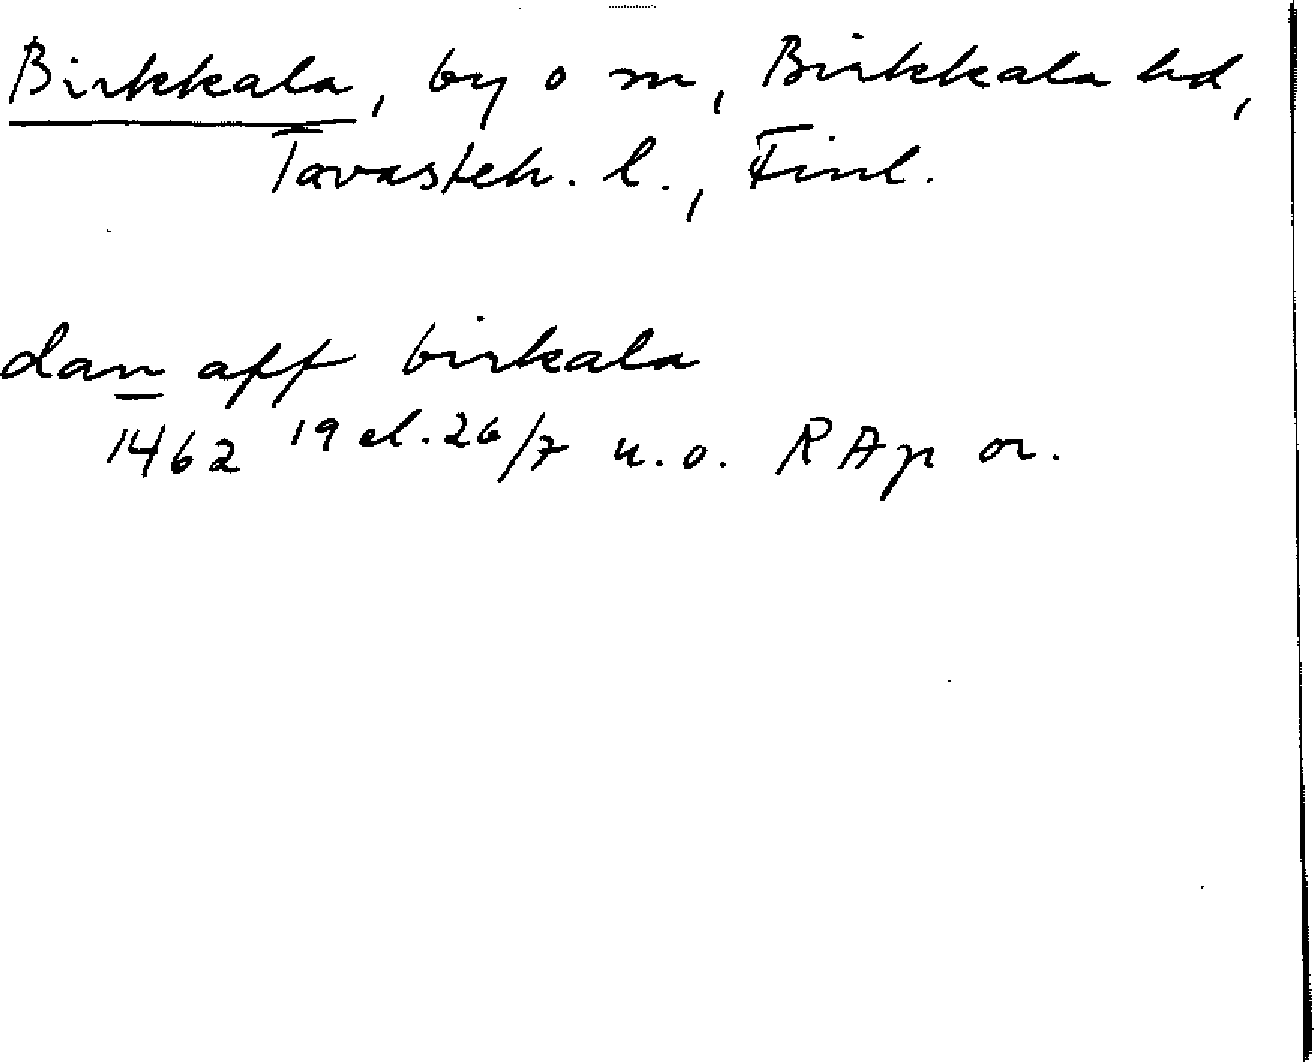 Birkkala, by o sn, Birkkala hd,
Tavasteh. l., Finl.
dan aff birkala
1462 19 el. 26/7 u.o. RAp or.